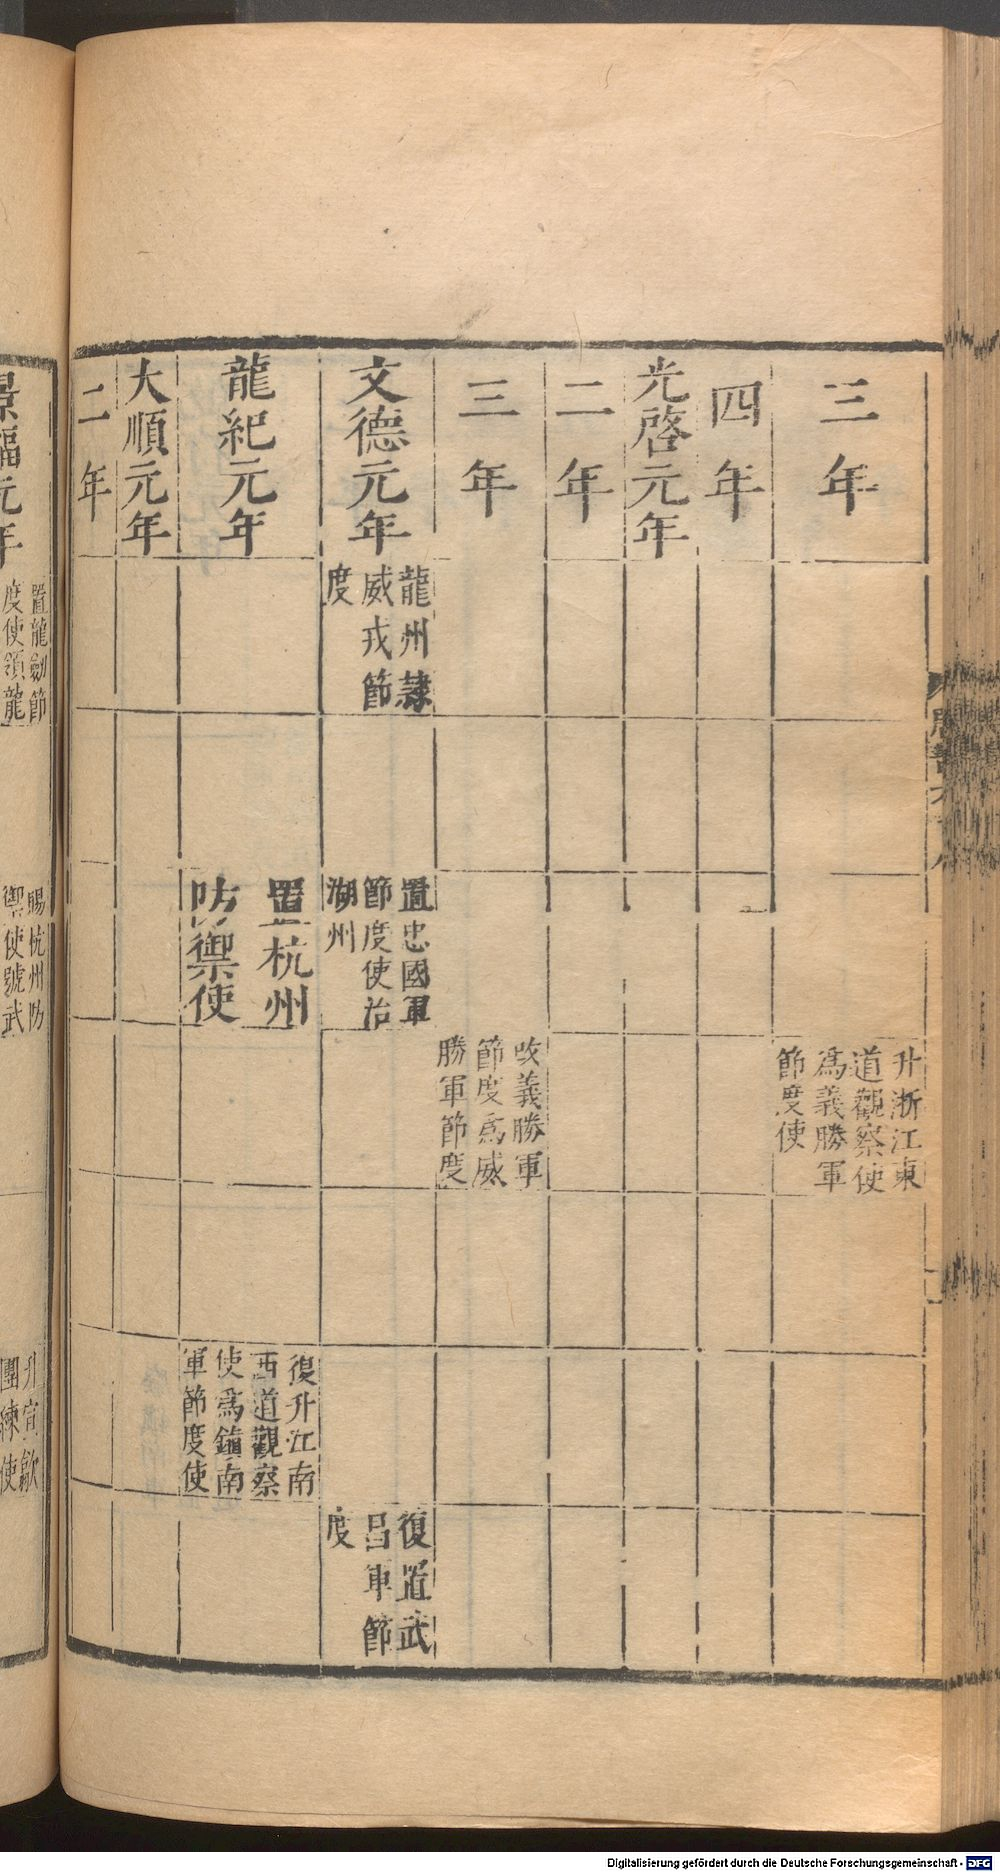 三年
升浙江東
道觀察使
爲義勝軍
節度使
四年
光啓元年
二年
三年
改義勝軍
節度爲威
勝軍節度
文德元年
龍州隸
威戎節
度
置忠國軍
節度使治
湖州
復置武
昌軍節
度
龍紀元年
置杭州
防禦使
復升江南
西道觀察
使爲鎮南
軍節度使
大順元年
二年
景福元年
置龍劒節
度使領龍
賜杭州防
禦使號武
升宣歙
團練使
Digitalisierung gefördert durch die Deutsche Forschungsgemeinschaft - DFG